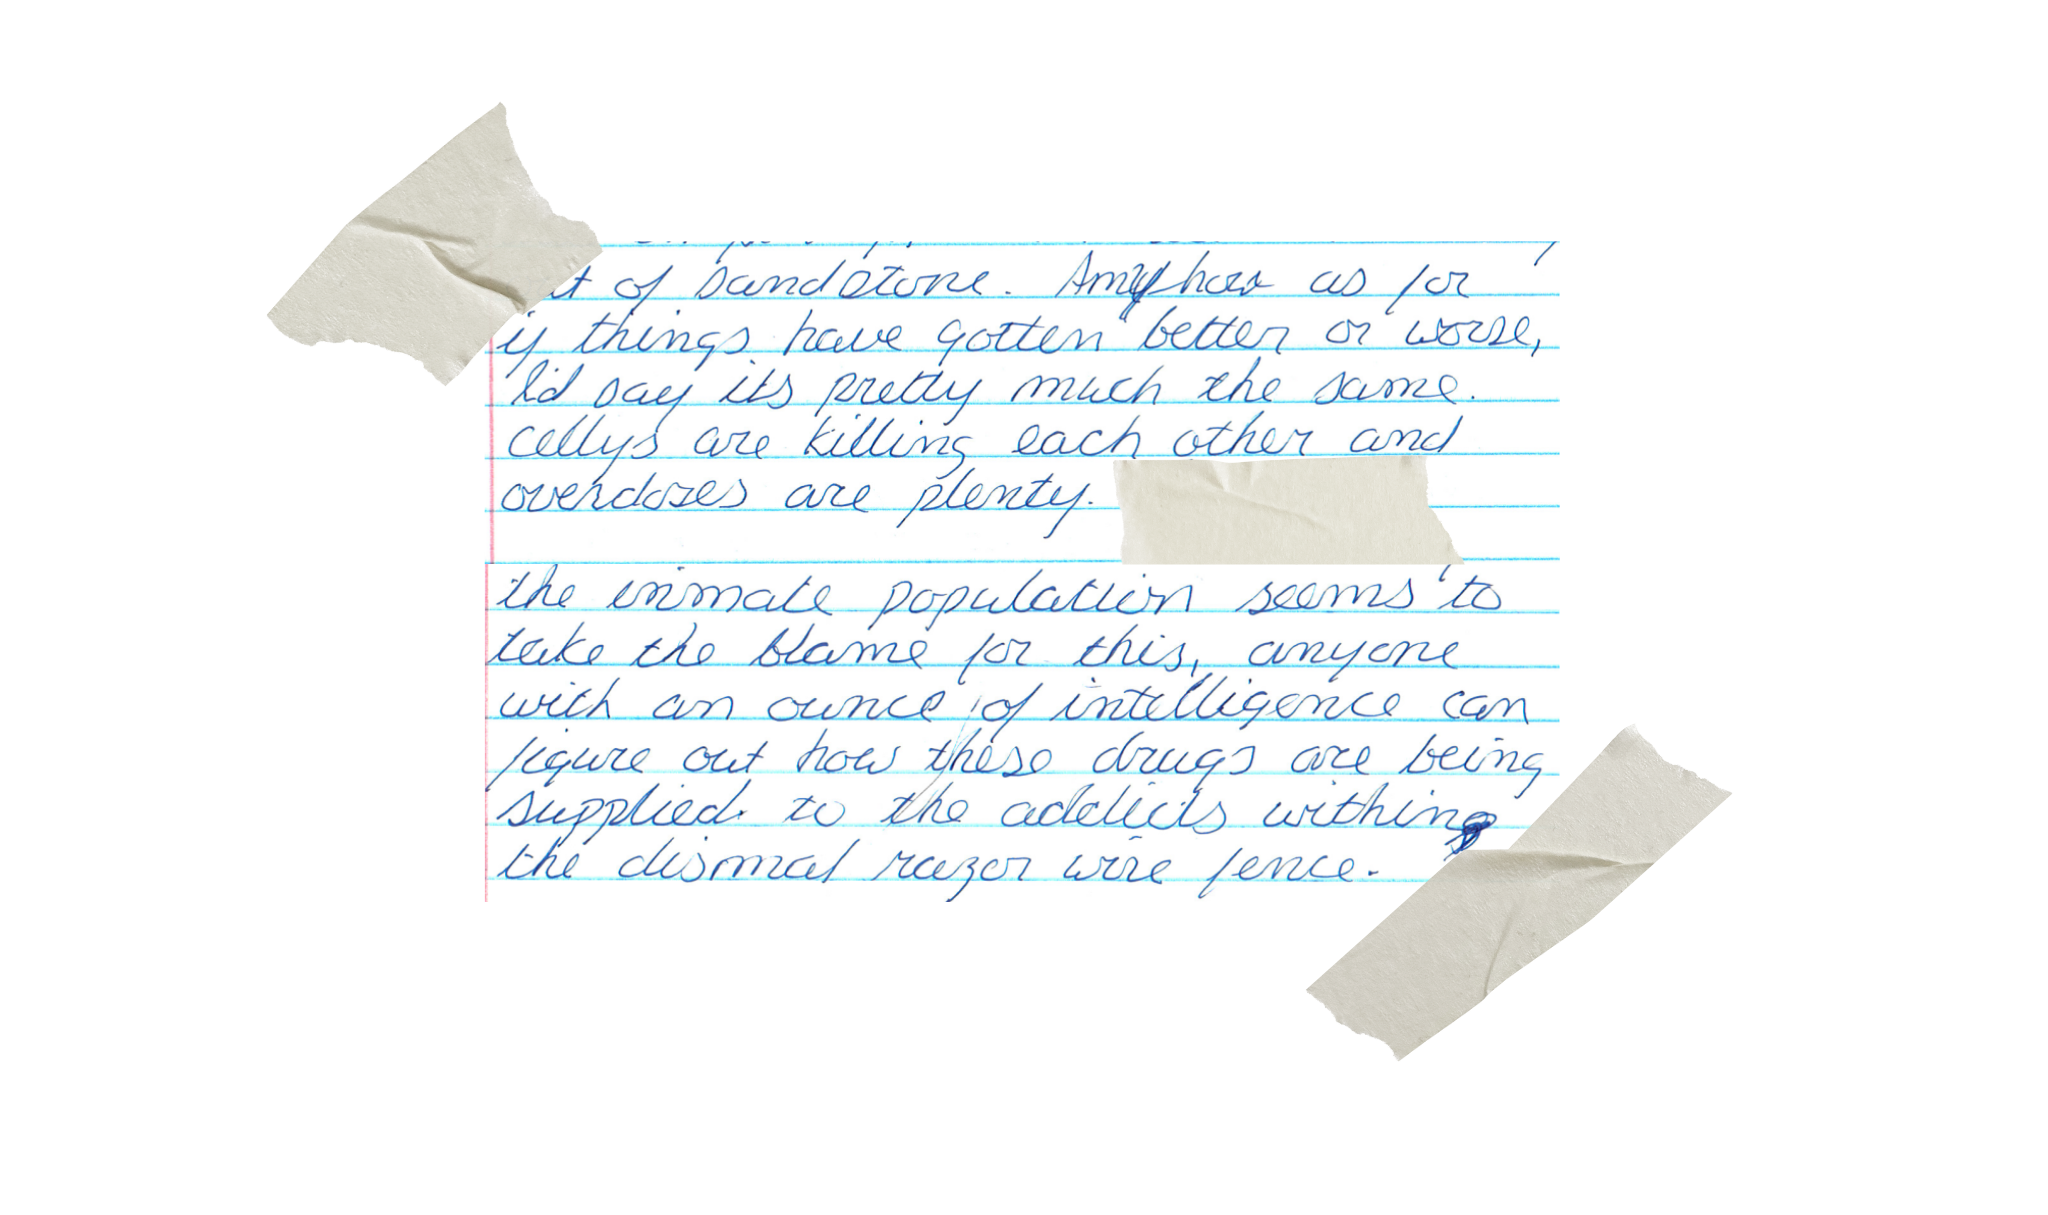 of sandstone. Anyhow as for
if things have gotten better or worse,
I'd say its pretty much the same.
cellys are killing each other and
overdoses are plenty.
the inmate population seems to
take the blame for this, anyone
with an ounce of intelligence can
figure out how these drugs are being
supplied to the addicts within
the dismal razor wire fence.